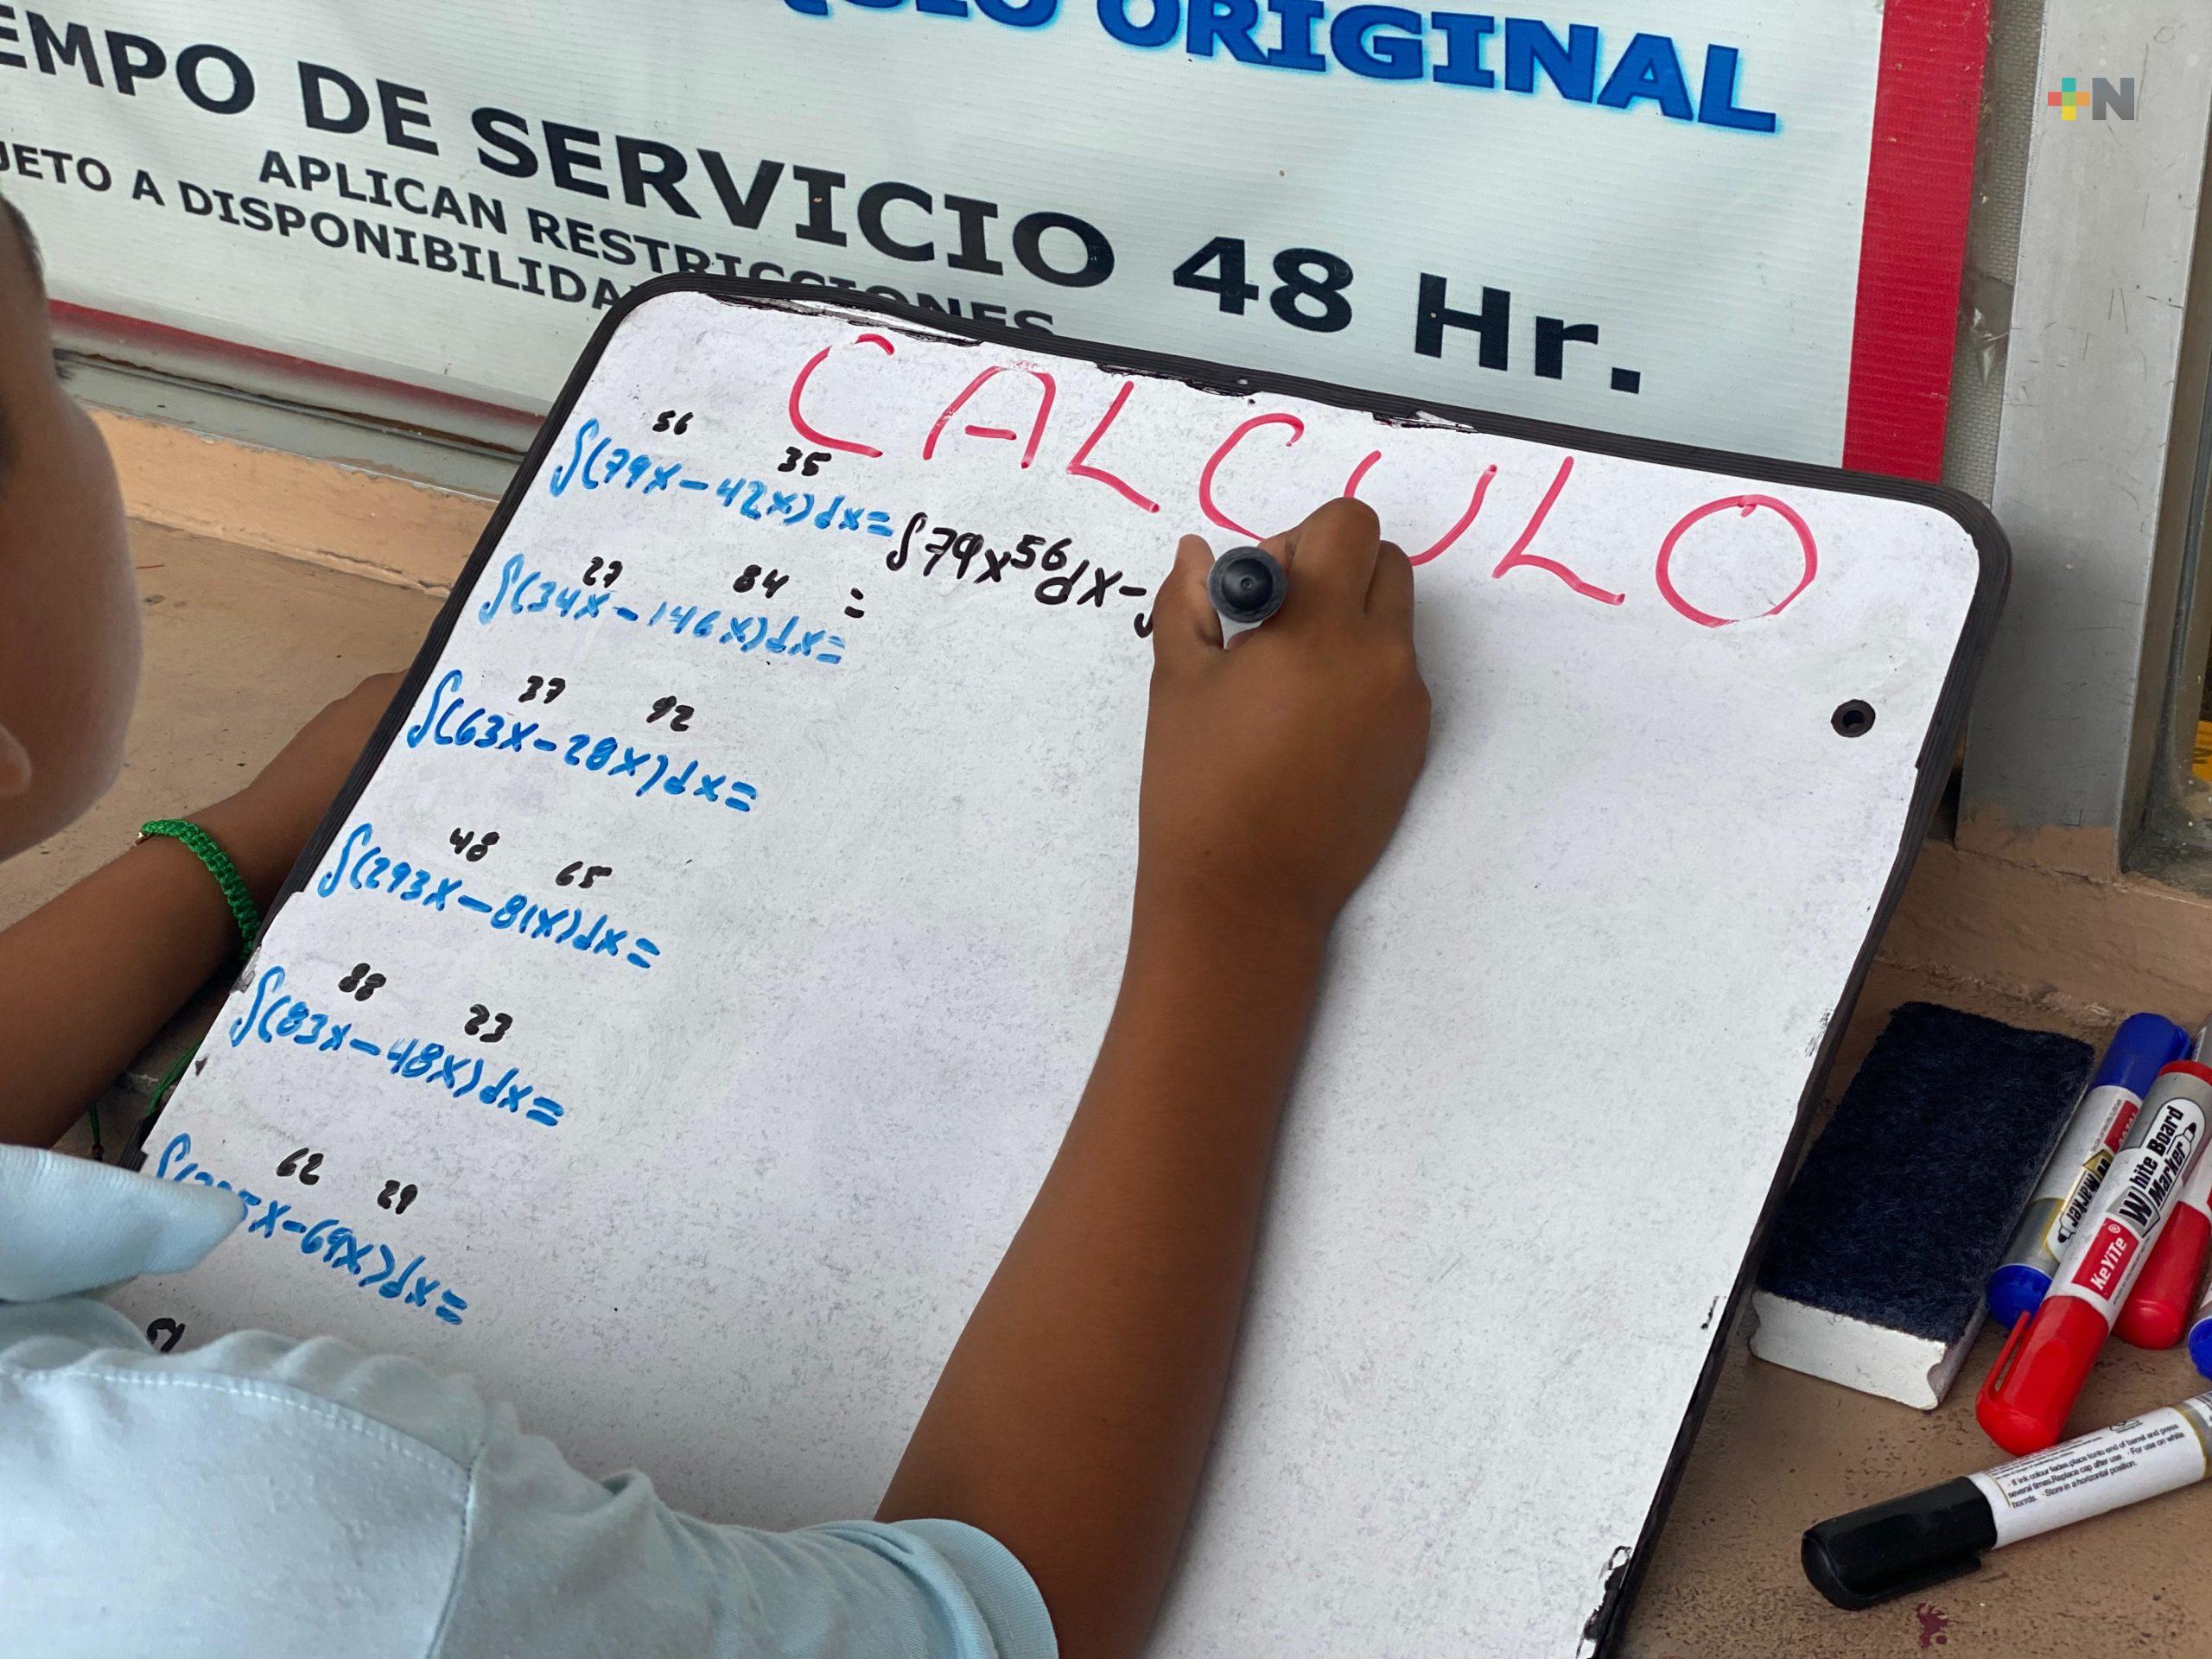 ORIGINAL
EMPO DE SERVICIO 48 Hr.
APLICAN RESTRICCIONES
JETO A DISPONIBILIDA
+N
CALCULO
∫(79x⁵⁶-42x³⁵)dx= ∫79x⁵⁶dx-∫
∫(34x²⁷-146x⁸⁴)dx= =
∫(63x³⁷-28x⁹²)dx=
∫(293x⁴⁸-81x⁶⁵)dx=
∫(83x⁸⁸-48x²³)dx=
x⁶²-69x²⁹)dx=
White Board
Marker
KeYiTe
Marker
If ink colour fades,place tonto end of barrel and press
several times.Replace cap after use. · For use on white
borrds. · Store in a horizontal position.